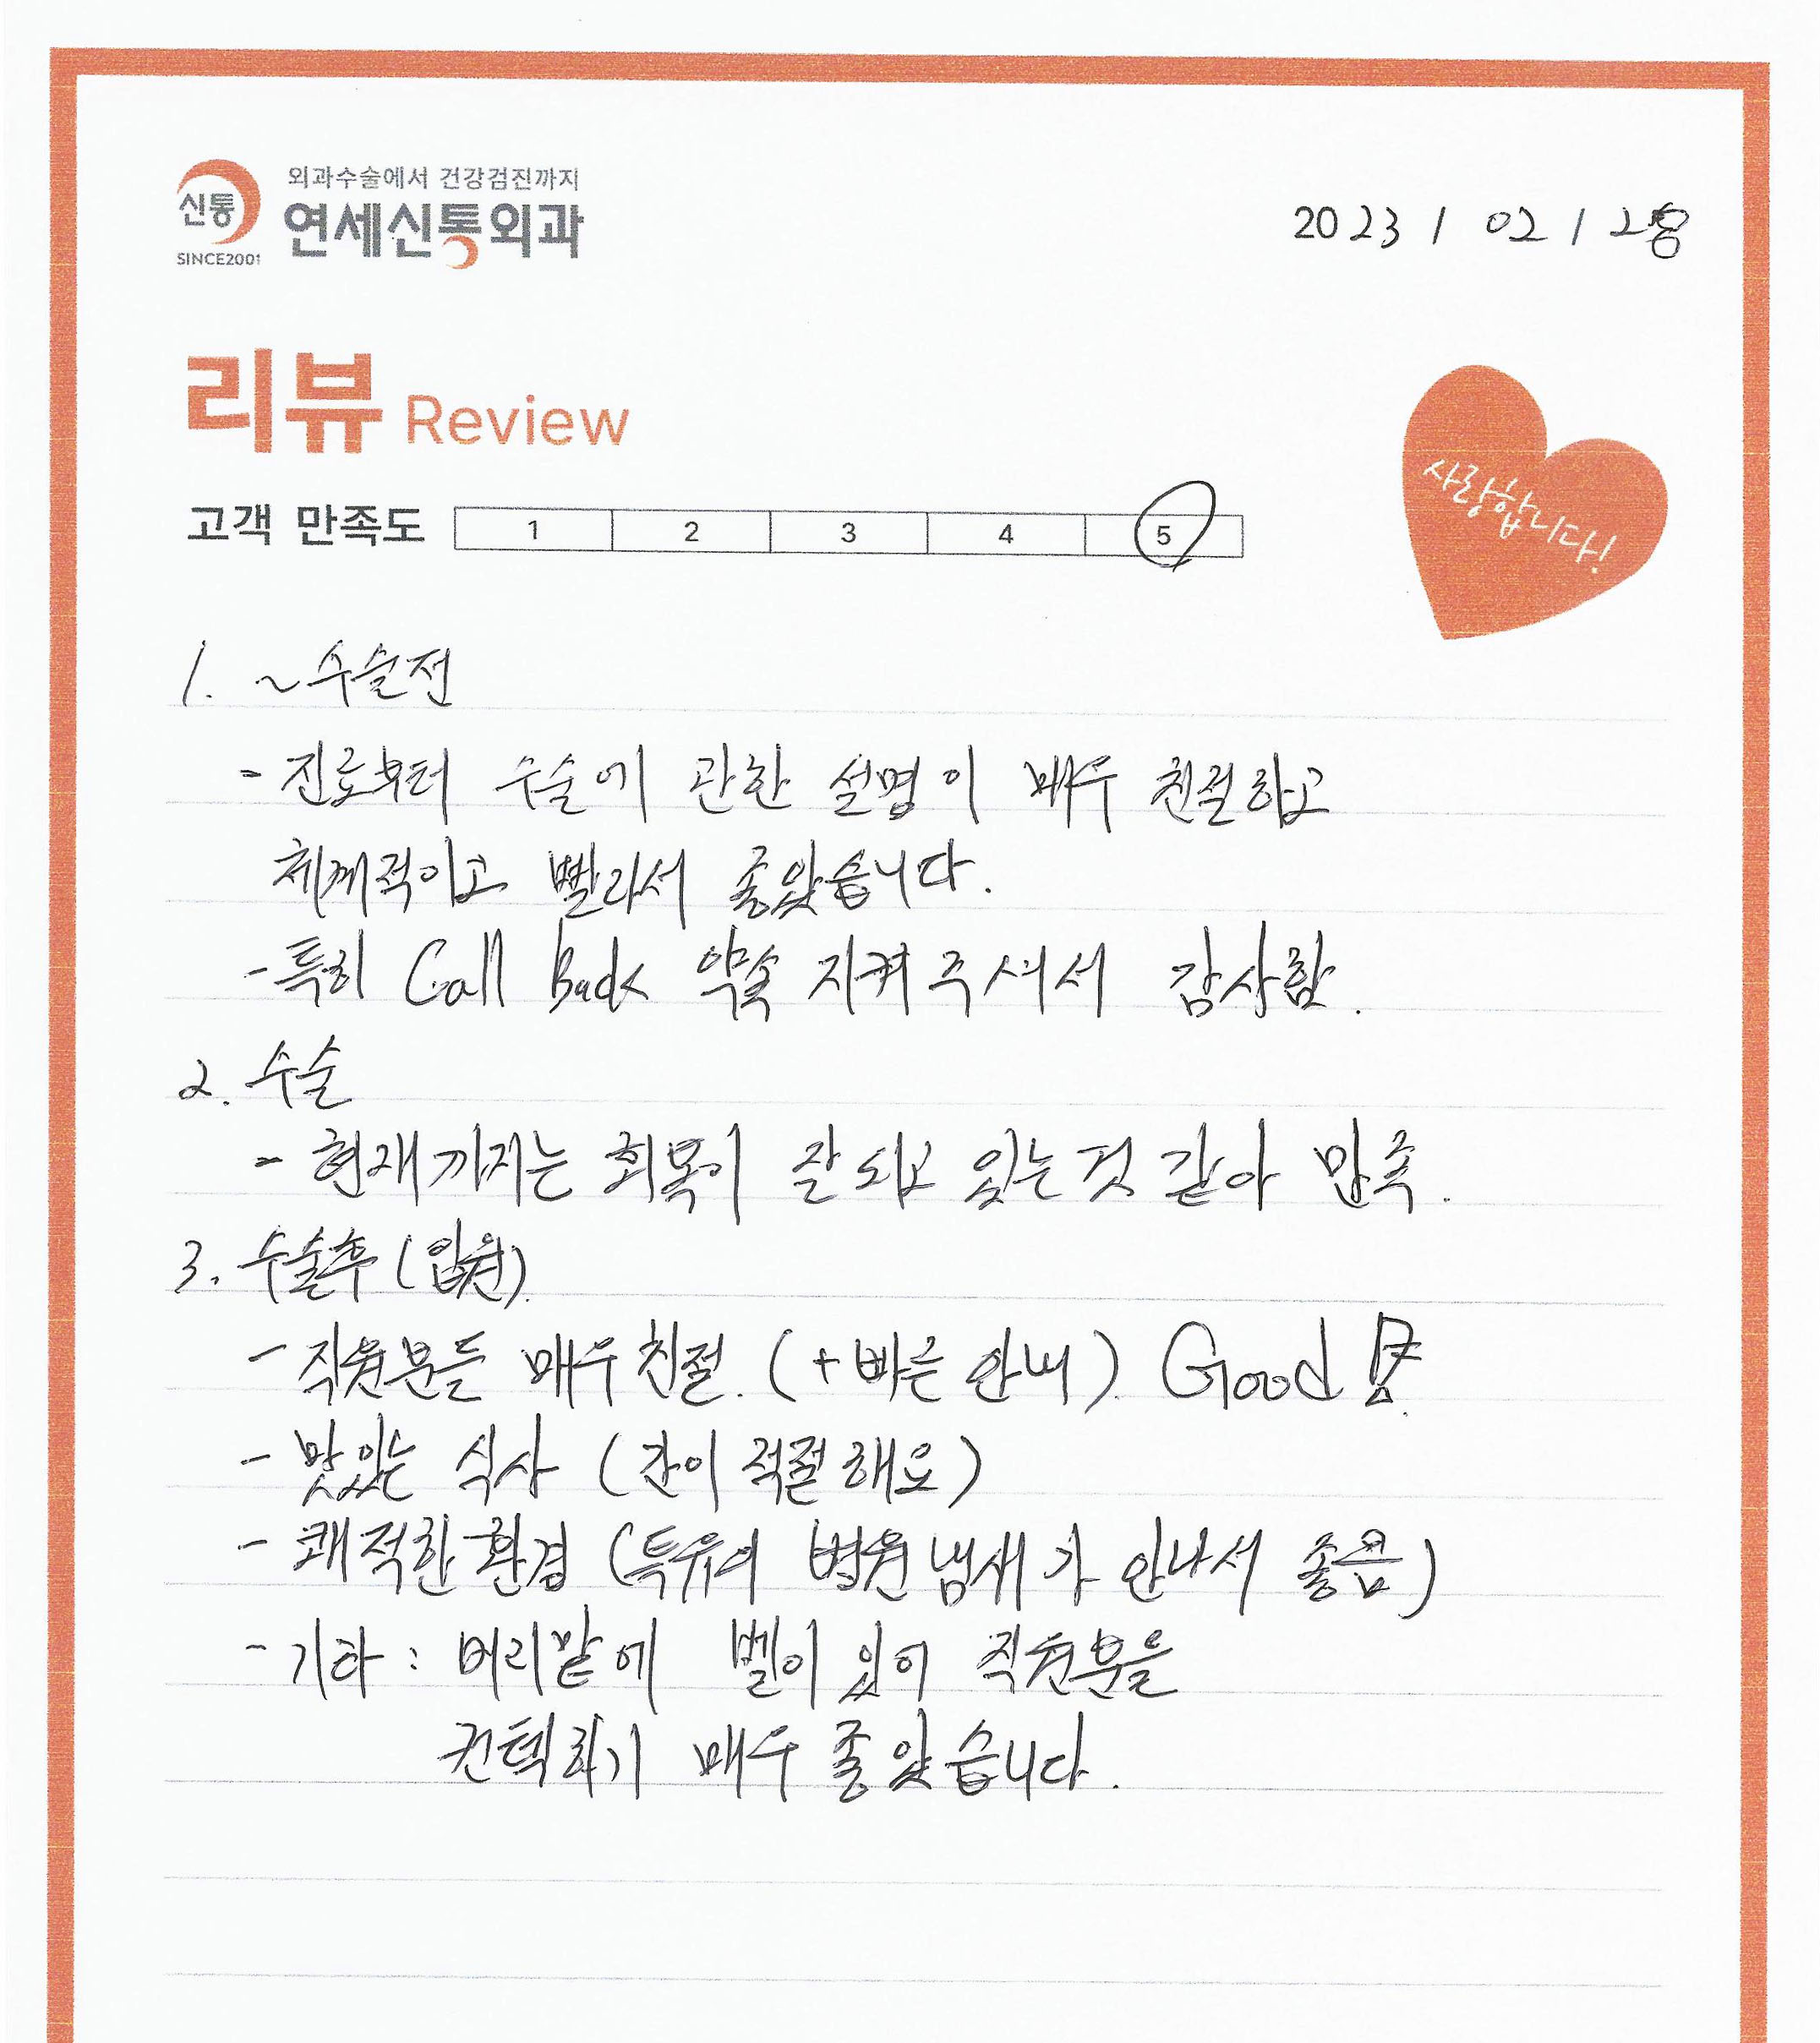 외과수술에서 건강검진까지
신통 연세신통외과
SINCE2001
2023 / 02 /
리뷰 Review
고객 만족도 1 2 3 4 5
사랑합니다!
1. ~수술전
- 진료부터 수술에 관한 설명이 매우 친절하고
체계적이고 빨라서 좋았습니다.
- 특히 Call Back 약속 지켜주셔서 감사함.
2. 수술
- 현재까지는 회복이 잘 되고 있는것 같아 만족.
3. 수술후 (입원).
- 직원분들 매우친절. (+빠른 안내). Good!
- 맛있는 식사 (간이 적절해요)
- 쾌적한 환경 (특유의 병원냄새가 안나서 좋음)
- 기타 : 머리맡에 벨이 있어 직원분을
컨텍하기 매우 좋았습니다.